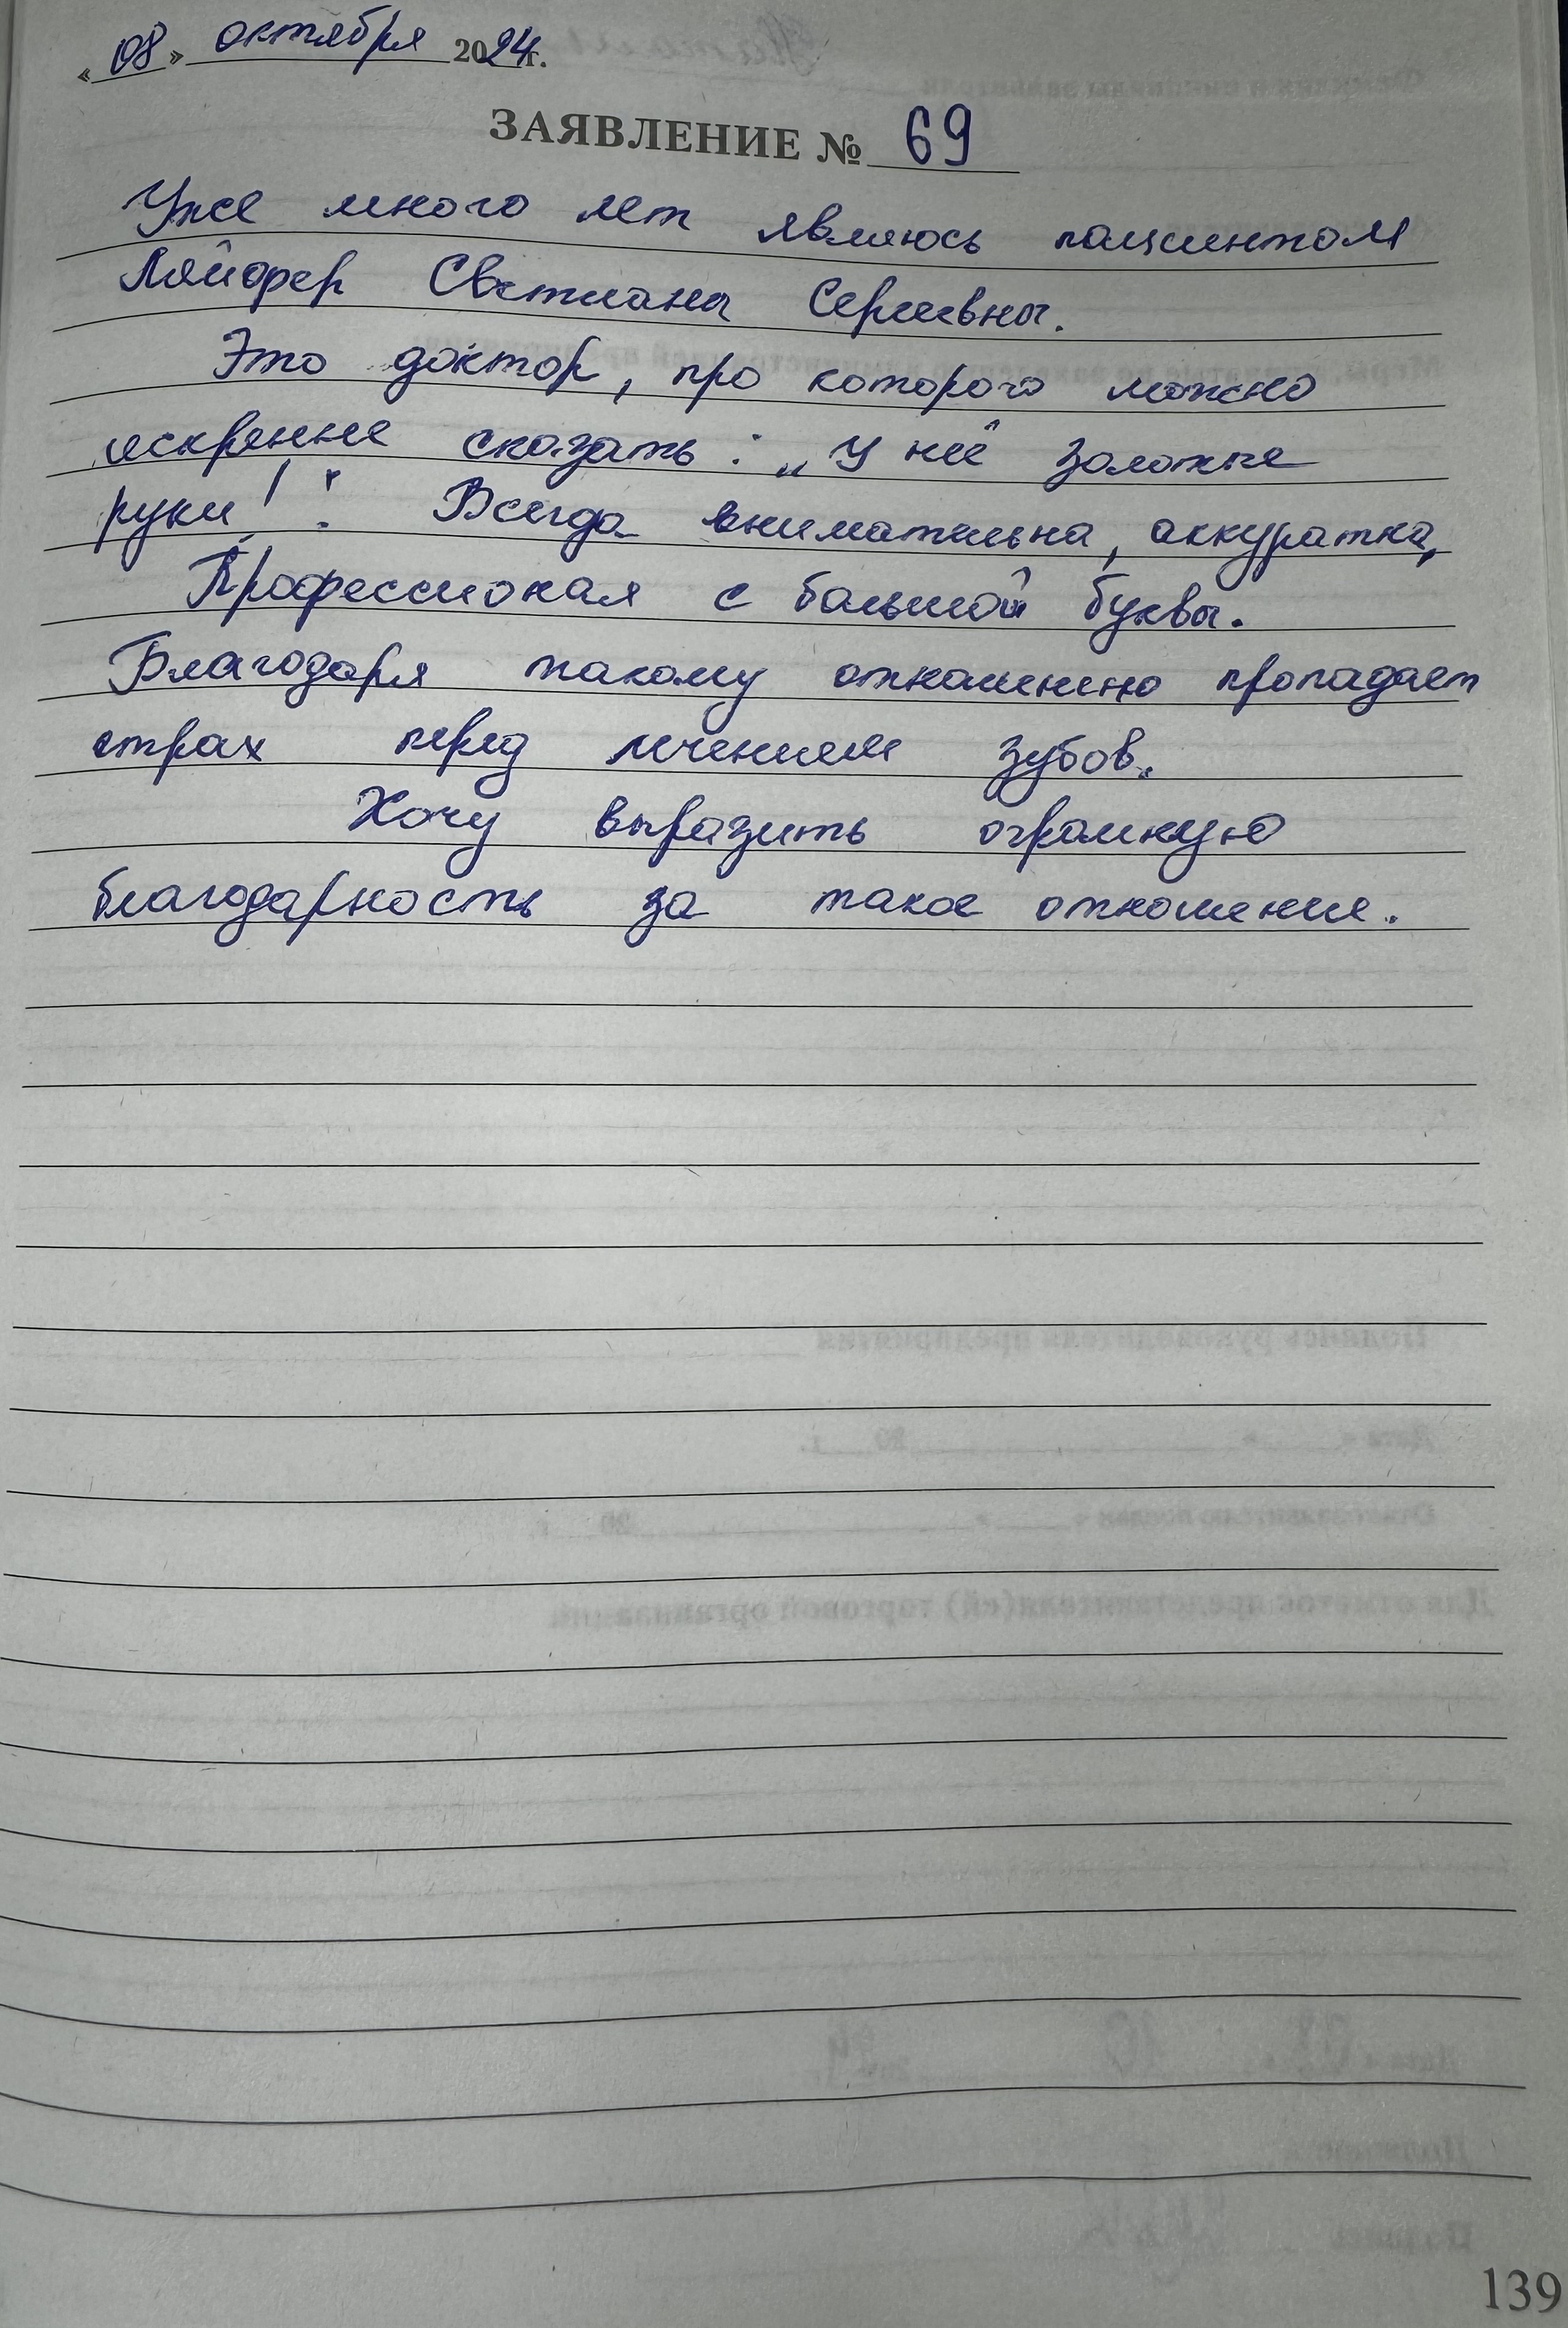 «08» октября 2024г.
ЗАЯВЛЕНИЕ № 69
Уже много лет являюсь пациентом
Ляйфер Светланы Сергеевны.
Это доктор, про которого можно
искренне сказать: „У неё золотые
руки!". Всегда внимательна, аккуратна,
Профессионал с большой буквы.
Благодаря такому отношению пропадает
страх перед лечением зубов.
Хочу выразить огромную
благодарность за такое отношение.
139